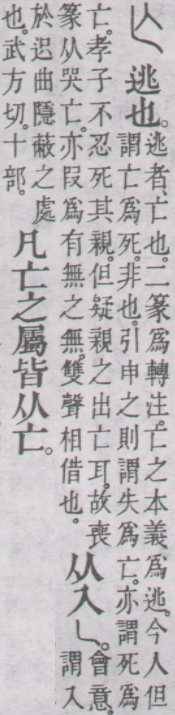 亾 逃也。
逃者、亡也。二篆爲轉注。亡之本義爲逃。今人但
謂亡爲死。非也。引申之則謂失爲亡。亦謂死爲
亡。孝子不忍死其親。但疑親之出亡耳。故喪
篆从哭亡。亦叚爲有無之無。雙聲相借也。
从入乚。
會意。
謂入
於迟曲隱蔽之處
也。武方切。十部。
凡亡之屬皆从亡。